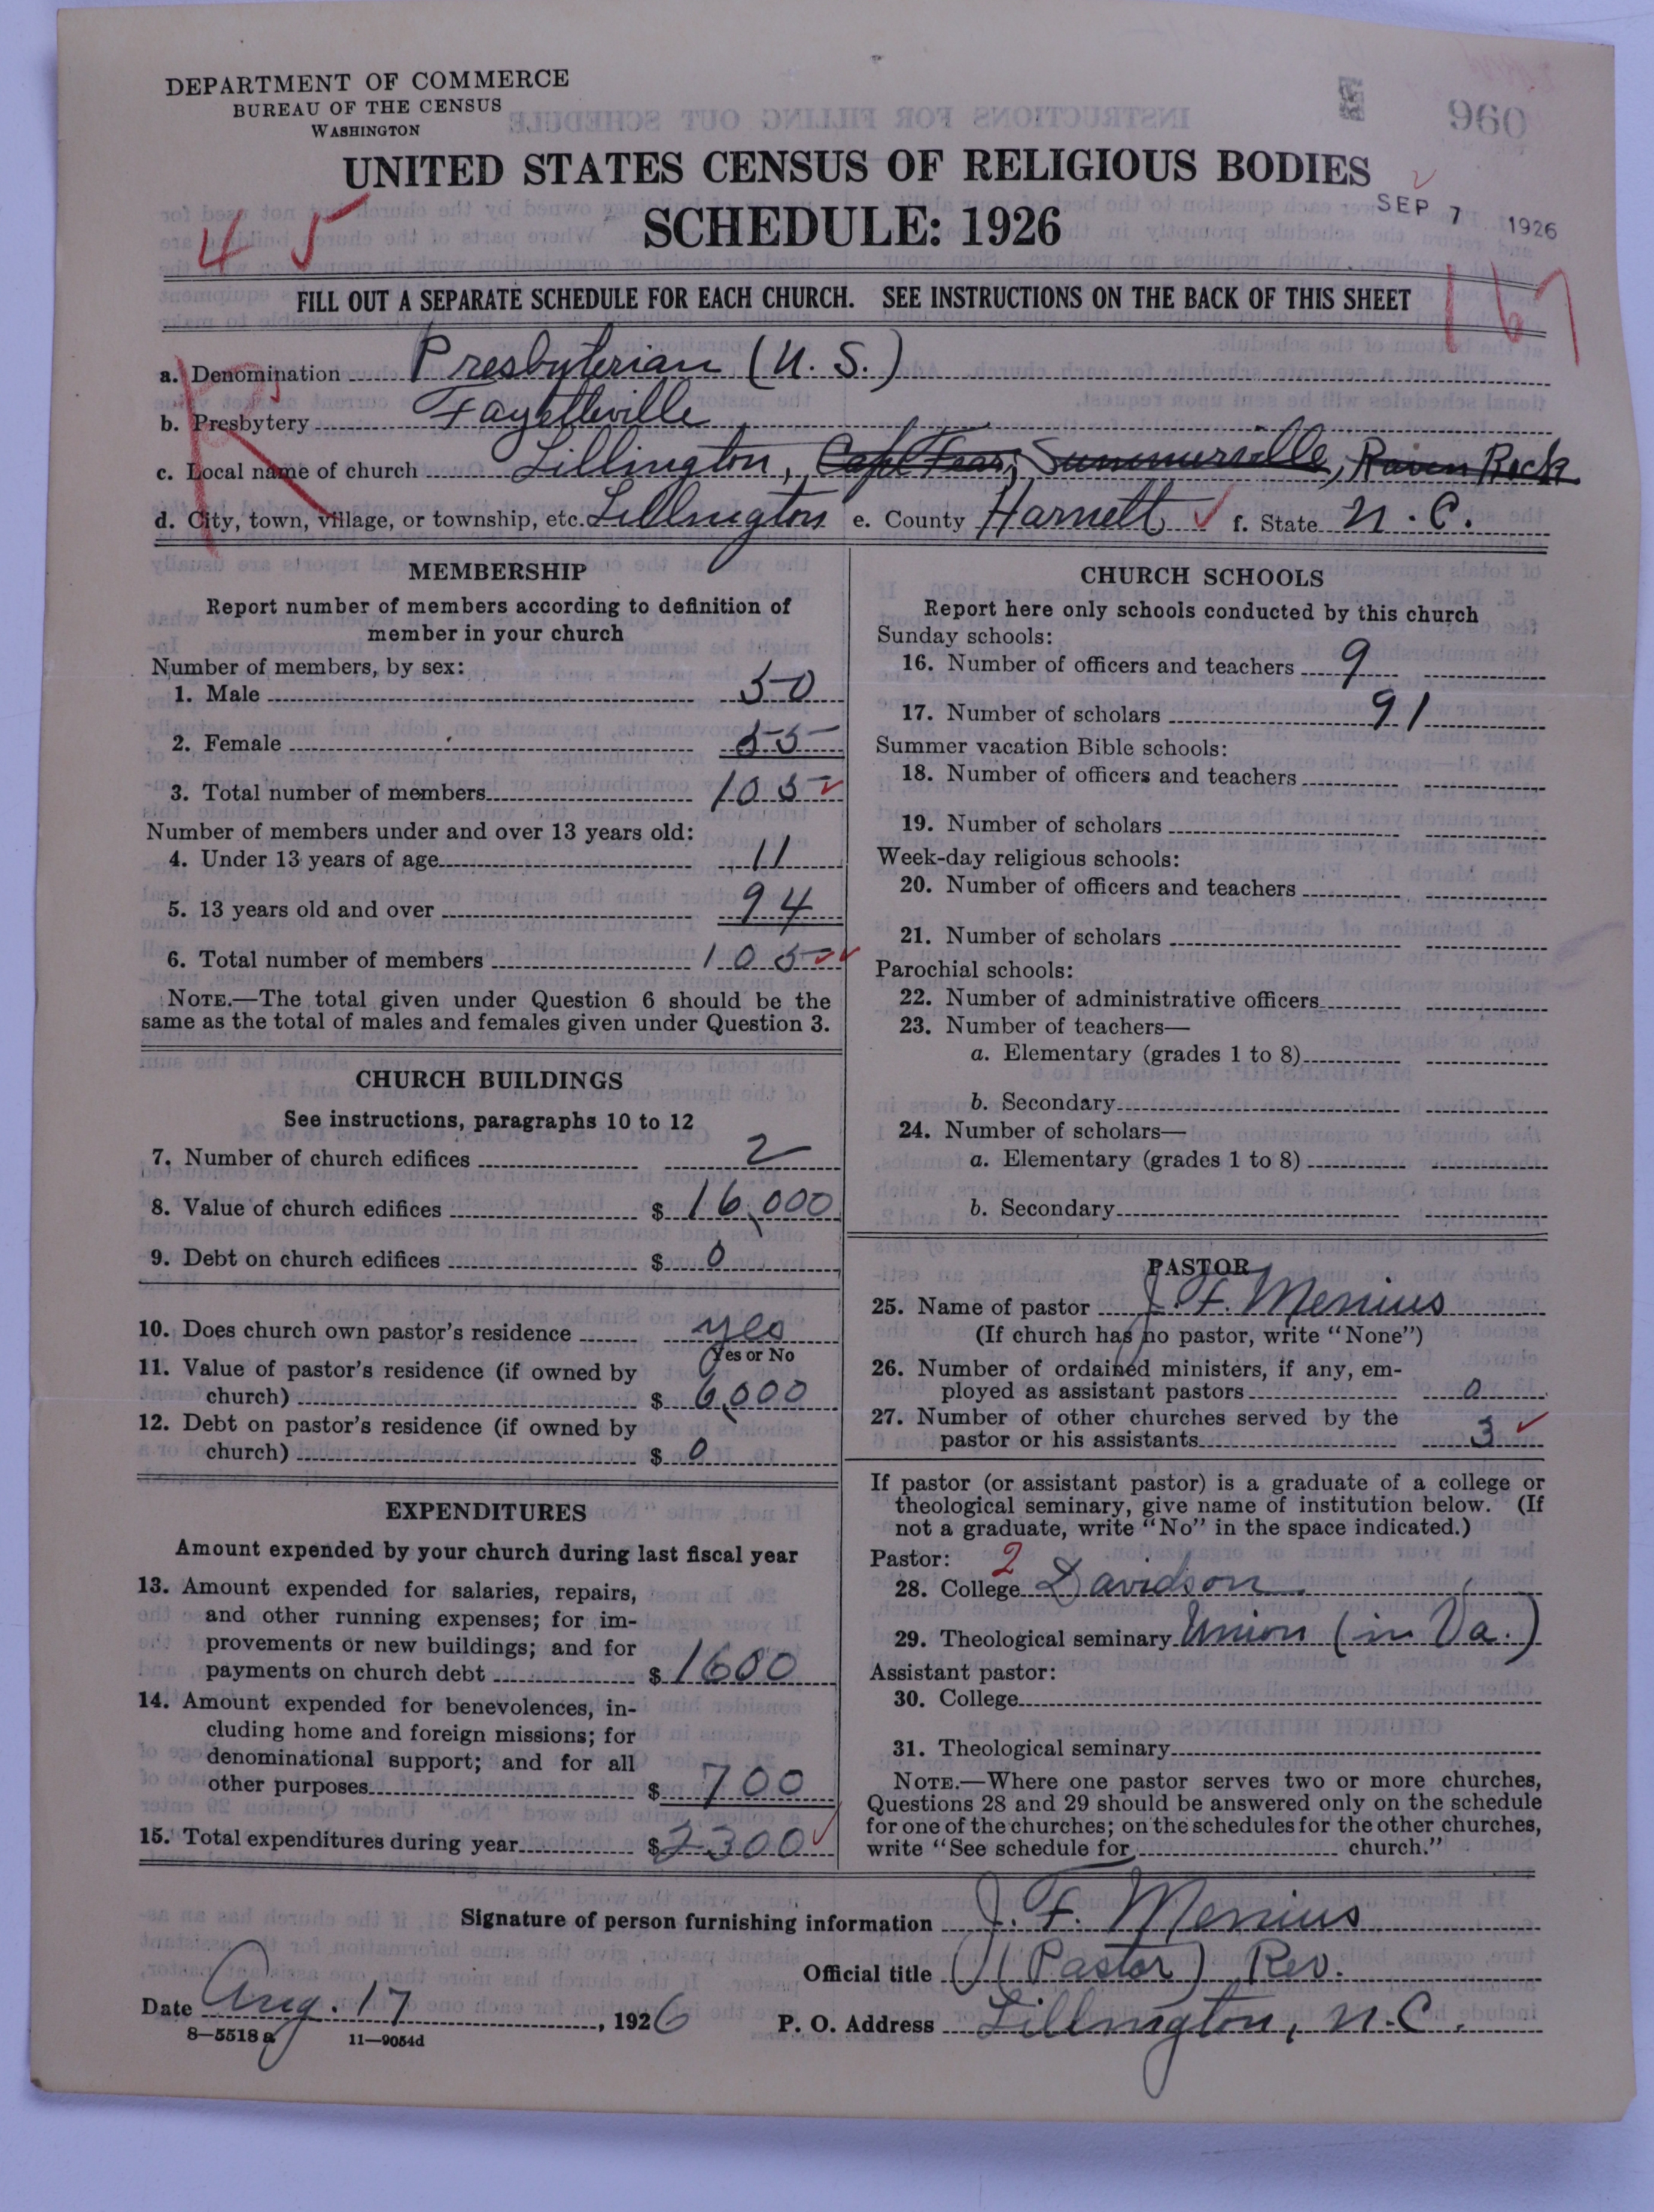 DEPARTMENT OF COMMERCE
BUREAU OF THE CENSUS
WASHINGTON
960
UNITED STATES CENSUS OF RELIGIOUS BODIES
SCHEDULE: 1926
SEP 7 1926
45
FILL OUT A SEPARATE SCHEDULE FOR EACH CHURCH. SEE INSTRUCTIONS ON THE BACK OF THIS SHEET
167
a. Denomination Presbyterian (U. S.)
b. Presbytery Fayetteville
c. Local name of church Lillington, Cape Fear, Summerville, Raven Rock
d. City, town, village, or township, etc. Lillington e. County Harnett f. State N. C.
MEMBERSHIP
Report number of members according to definition of
member in your church
Number of members, by sex:
1. Male 50
2. Female 55
3. Total number of members 105
Number of members under and over 13 years old:
4. Under 13 years of age 11
5. 13 years old and over 94
6. Total number of members 105
NOTE.—The total given under Question 6 should be the
same as the total of males and females given under Question 3.
CHURCH BUILDINGS
See instructions, paragraphs 10 to 12
7. Number of church edifices 2
8. Value of church edifices $ 16,000
9. Debt on church edifices $ 0
10. Does church own pastor's residence yes
Yes or No
11. Value of pastor's residence (if owned by
church) $ 6,000
12. Debt on pastor's residence (if owned by
church) $ 0
EXPENDITURES
Amount expended by your church during last fiscal year
13. Amount expended for salaries, repairs,
and other running expenses; for im-
provements or new buildings; and for
payments on church debt $ 1600
14. Amount expended for benevolences, in-
cluding home and foreign missions; for
denominational support; and for all
other purposes $ 700
15. Total expenditures during year $ 2300
CHURCH SCHOOLS
Report here only schools conducted by this church
Sunday schools:
16. Number of officers and teachers 9
17. Number of scholars 91
Summer vacation Bible schools:
18. Number of officers and teachers
19. Number of scholars
Week-day religious schools:
20. Number of officers and teachers
21. Number of scholars
Parochial schools:
22. Number of administrative officers
23. Number of teachers—
a. Elementary (grades 1 to 8)
b. Secondary
24. Number of scholars—
a. Elementary (grades 1 to 8)
b. Secondary
PASTOR
25. Name of pastor J. F. Menius
(If church has no pastor, write "None")
26. Number of ordained ministers, if any, em-
ployed as assistant pastors 0
27. Number of other churches served by the
pastor or his assistants 3
If pastor (or assistant pastor) is a graduate of a college or
theological seminary, give name of institution below. (If
not a graduate, write "No" in the space indicated.)
Pastor: 2
28. College Davidson
29. Theological seminary Union (in Va.)
Assistant pastor:
30. College
31. Theological seminary
NOTE.—Where one pastor serves two or more churches,
Questions 28 and 29 should be answered only on the schedule
for one of the churches; on the schedules for the other churches,
write "See schedule for church."
Signature of person furnishing information J. F. Menius
Official title (Pastor) Rev.
Date Aug. 17, 1926 P. O. Address Lillington, N.C.
8—5518 a 11—9054d